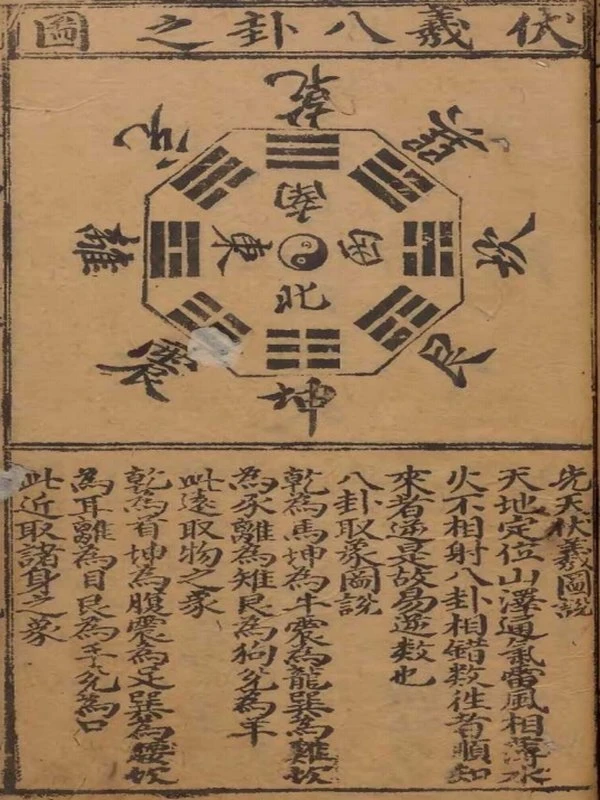 伏羲八卦之圖
乾
巽
坎
艮
坤
震
離
兌
南
西
北
東
先天伏羲圖說
天地定位山澤通氣雷風相薄水
火不相射八卦相錯數往者順知
來者逆是故易逆數也
八卦取象圖說
乾為馬坤為牛震為龍巽為雞坎
為豕離為雉艮為狗兌為羊
此遠取物之象
乾為首坤為腹震為足巽為腰坎
為耳離為目艮為手兌為口
此近取諸身之象